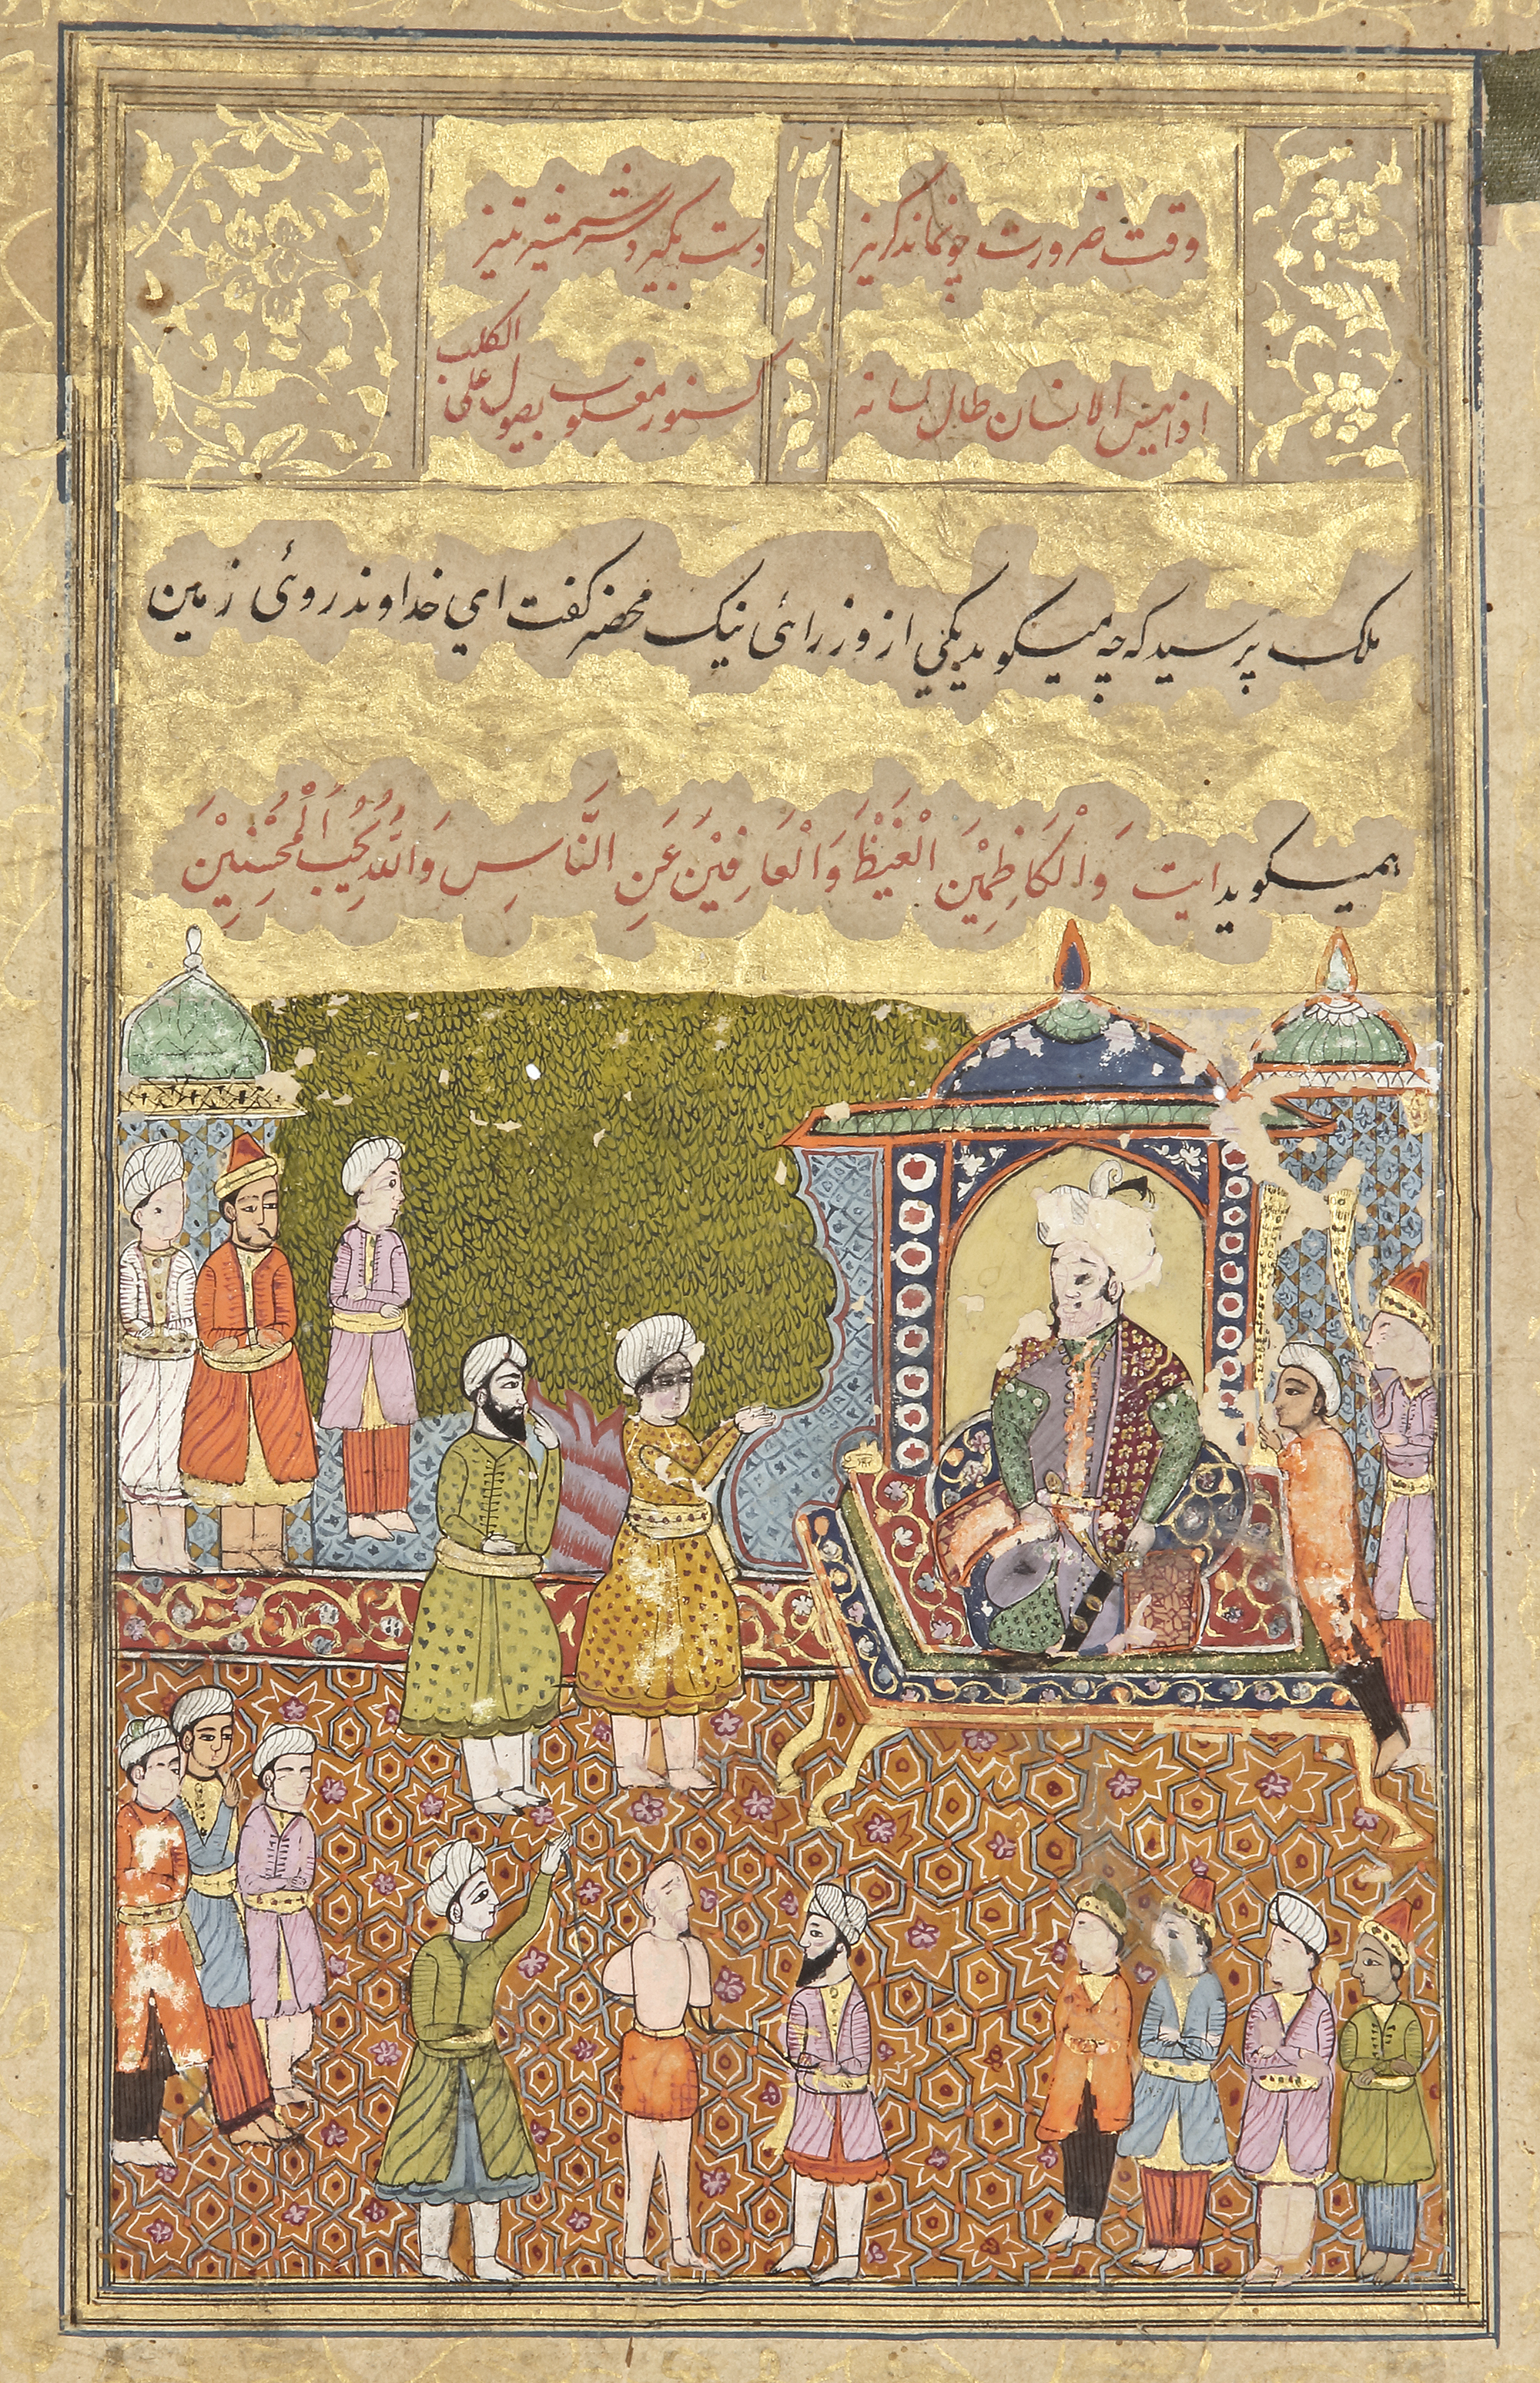 وقت ضرورت چو نماند گریز
دست بگیرد سر شمشیر تیز
اذا یئس الانسان طال لسانه
کسنور مغلوب یصول علی الکلب
ملک پرسید که چه میکوید یکی از وزرائ نیک محضر کفت ای خداوند روئ زمین
همیکوید ایت وَالْکَاظِمِیْنَ الْغَیْظَ وَالْعَافِیْنَ عَنِ النَّاسِ وَاللّٰهُ یُحِبُ الْمُحْسِنِیْنَ